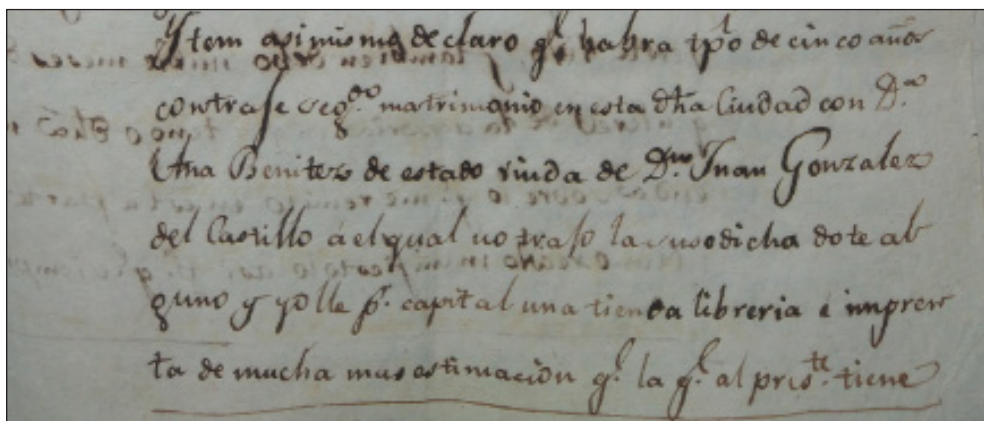 Ytem asimismo declaro q.e habra tpo de cinco años
contraje seg.do matrimonio en esta dha Ciudad con D.a
Ana Benitez de estado viuda de D.n Juan Gonzalez
del Castillo á el qual no trajo la susodicha dote al
guno y yo lle p.r capital una tienda libreria é impren
ta de mucha mas estimacion q.e la q.e al pres.te tiene